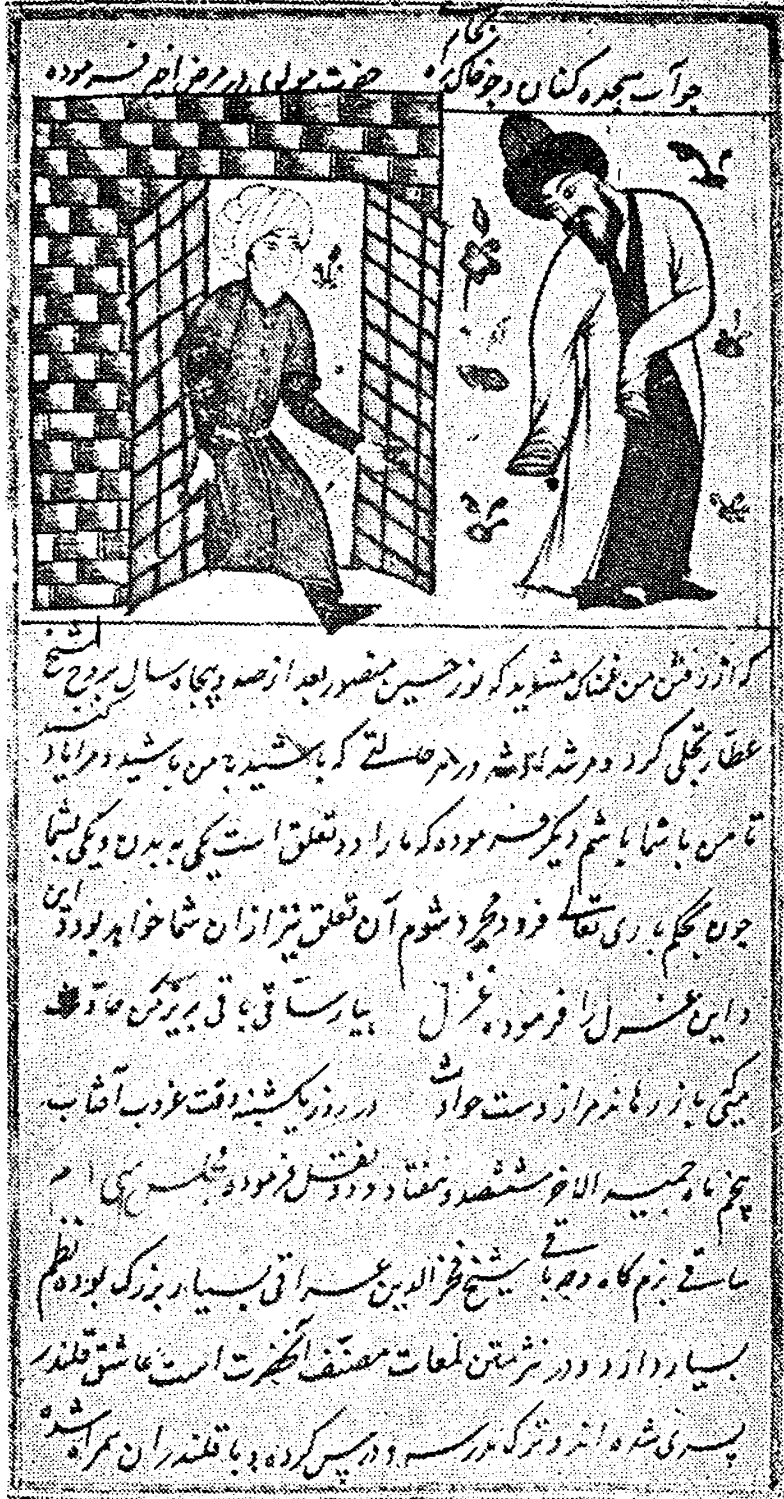 چو آب سجده کنان و چو خاک راه بکام حضرت مولوی در مرض اخیر فرموده
که از رفتن من غمناک مشوید که نور حسین منصور بعد از صد و پنجاه سال بروح شیخ
عطار تجلی کرد و مرشد او شد در هر حالتی که باشید با من باشید و مرا یاد کنید
تا من با شما باشم دیگر فرموده که ما را دو تعلق است یکی به بدن و یکی بشما
چون بحکم باری تعالی فرد و مجرد شوم آن تعلق نیز از آن شما خواهد بود و این
و این غزل را فرموده غزل بیار ساقی باقی بریز کن
میکنی باز رهاند مرا از دست حوادث در روز یکشنبه وقت غروب آفتاب
پنجم ماه جمید الاخر ششصد و هفتاد و دو نقل فرموده مجلس سی ام
ساقی بزم گاه وجه باقی شیخ فخرالدین عراقی بسیار بزرگ بوده نظم
بسیار دارد و در نثر متن لمعات مصنف آنحضرت است عاشق قلندر
پسری شده اند و ترک مدرسه و درس کرده و با قلندران همراه شده